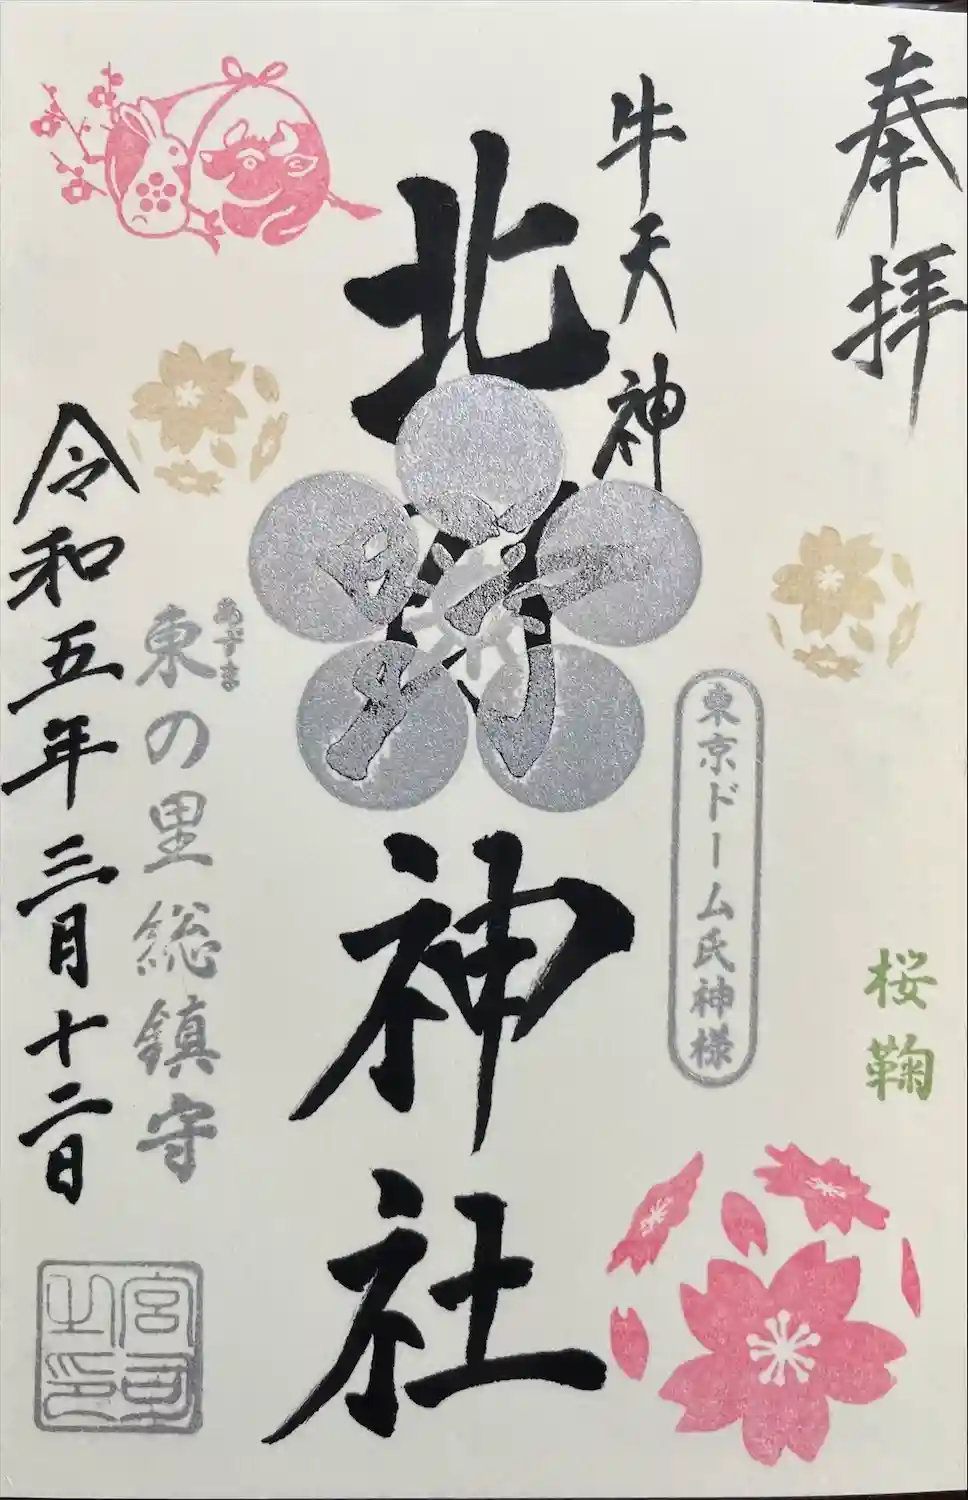 奉拝
牛天神
北野神社
東京ドーム氏神様
桜鞠
東の里総鎮守
あずま
令和五年三月十二日
宮司之印